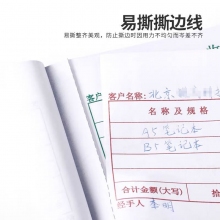 易撕撕边线
易撕整齐美观，防止撕边时因用力不均匀而参差不齐
客户
客户名称：北京
名称及规格
G5笔记本
B5笔记本
合计金额(大写)
拾
经手人 李明